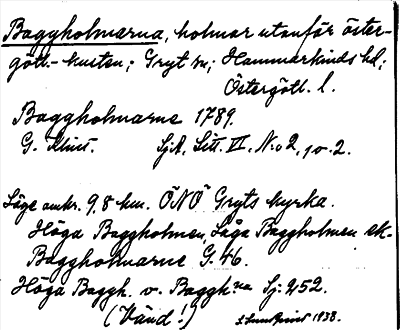 Baggholmarna, holmar utanför öster-
götl.-kusten; Gryt sn; Hammarkinds hd;
Östergötl. l.
Baggholmarne 1789.
G. Klint. Sj.A. Litt. VI. N:o 2, 
Läge omkr. 9,8 km. ÖNÖ Gryts kyrka.
Höga Baggholmen, Låga Baggholmen ek-
Baggholmarne G. 46.
Höga Baggh. o. Baggh:na Sj. 252.
(Vänd!) 1938.